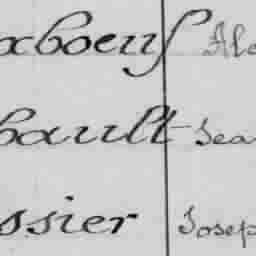 xboeuf Ale
bault Jea
ssier Josep